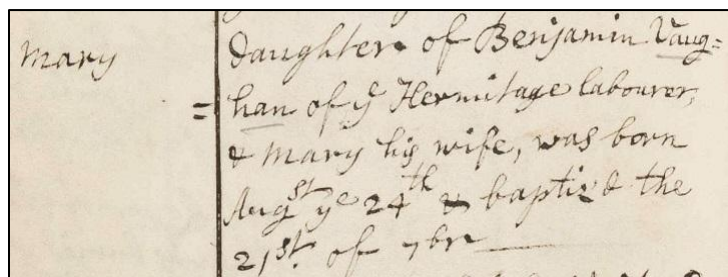 Mary
daughter of Benjamin Vaug=
=han of ye Hermitage labourer,
& Mary his wife, was born
Augst ye 24th & baptiz'd the
21st. of 7br